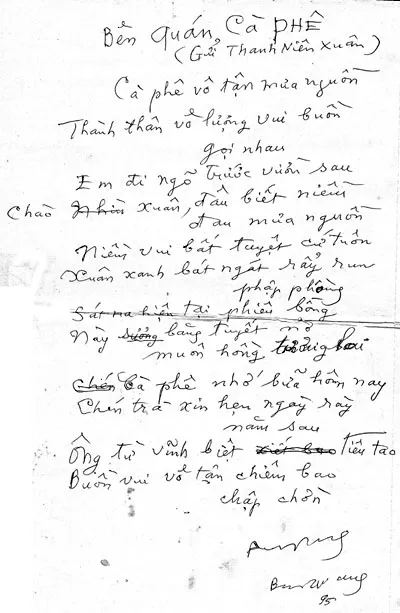 Bên Quán Cà Phê
(Gửi Thanh Niên Xuân)
Cà phê vô tận mưa nguồn
Thành thân vô lượng vui buồn
gọi nhau
Em đi ngõ trước vườn sau
Chào xuân, đâu biết niềm
đau mưa nguồn
Niềm vui bất tuyệt cứ tuôn
Xuân xanh bát ngát rẩy run
phập phồng
tại phiêu bồng
Này băng tuyết nở
muôn hồng
Cà phê nhớ bữa hôm nay
Chén trà xin hẹn ngày rày
năm sau
Ông từ vĩnh biệt tiêu tao
Buồn vui vô tận chiêm bao
chập chờn
95